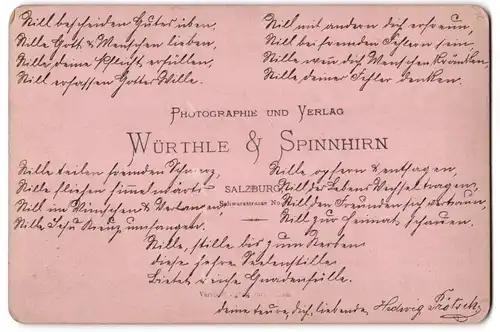 Still bescheiden Gutes üben,
Stille Gott & Menschen lieben,
Stille deine Pflicht erfüllen,
Still erfassen Gottes Wille.
Still mit andern dich erfreun,
Still bei fremden Fehlern sein,
Stille wenn dich Menschen kränken,
Stille deiner Fehler denken.
PHOTOGRAPHIE UND VERLAG
WÜRTHLE & SPINNHIRN
SALZBURG
Schwarzstrasse No
Stille teilen fremden Schmerz,
Stille fliehen himmelwärts
Still im Wünschen & Verlangen,
Stille Jesu Kreuz umfangen.
Stille opfern & entsagen,
Still des Lebens Wechsel tragen,
Still den Freundes sich vertraun,
Still zur Heimat schauen.
Stille, stille bis zum Sterben
diese hehre Seelenstille
Bietet reiche Gnadenfülle.
deine teure, dich, liebende Hedwig